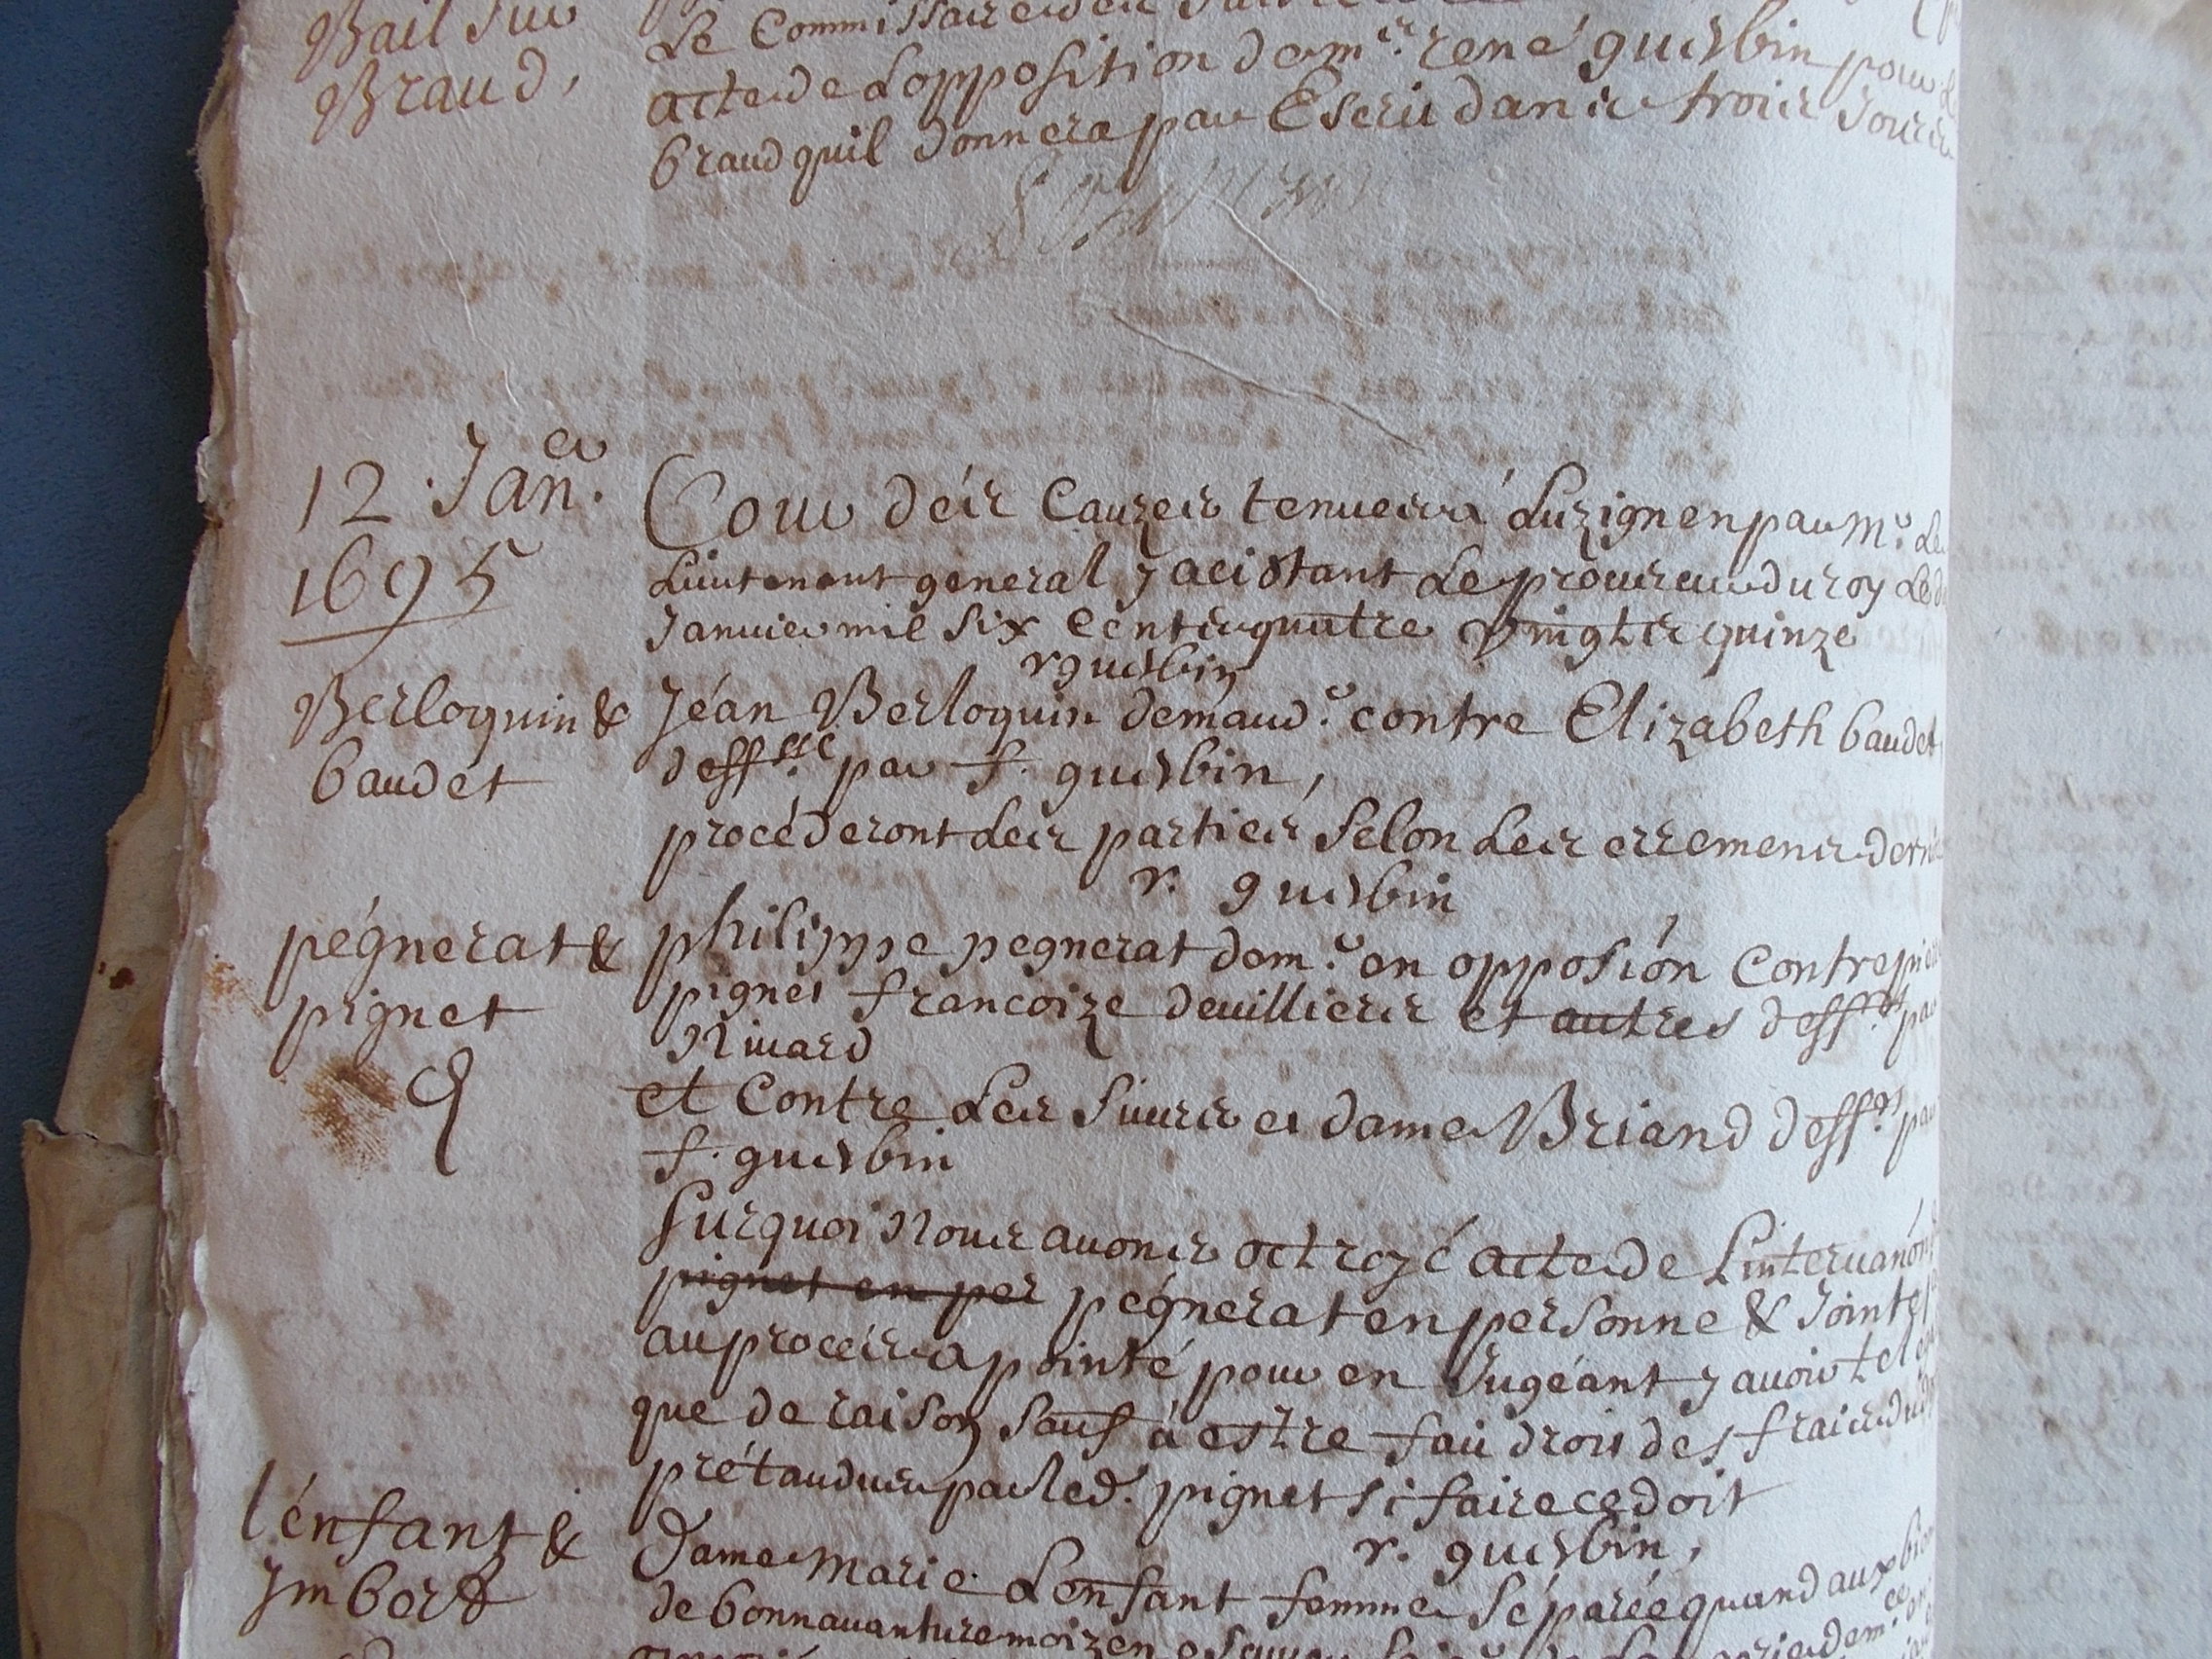 Bail sur
Braud,
Le Commissaire des
acte de Lopposition de mr. rené guesbin pour
braud quil donnera par Escrit dans trois Jours
12 Janer.
1695
Cour des Causes tenues a Luzignen par Mr. Le
Lieutenent general y acistant Le procureur du roy Le
Januier mil six cents quatre vingts quinze
r guesbin
Berloquin &
baudet
Jéan Berloquin demandr. contre Elizabeth baudet
deff.sse par f. guesbin,
procéderont Les parties selon Les erremens
r. guesbin
pégnerat &
pignet
philippe pegnerat demr. en opposión Contre
pignet francoize deuilliers et autres deff.rs
Niuard
et Contre Les sieurs et dame Briand deff.rs
f. guesbin
surquoi Nous auons octroyé acte de
pignet en per pégnerat en personne & Jointe
au procès apointé pour en Jugéant y auoir tel
que de raison sauf à estre fait droit des frais
prétandus par led. pignet si faire ce doit
r. guesbin,
lénfant &
Jmbert
Dame Marie Lenfant femme séparée quand aux
de bonnauanture moizen